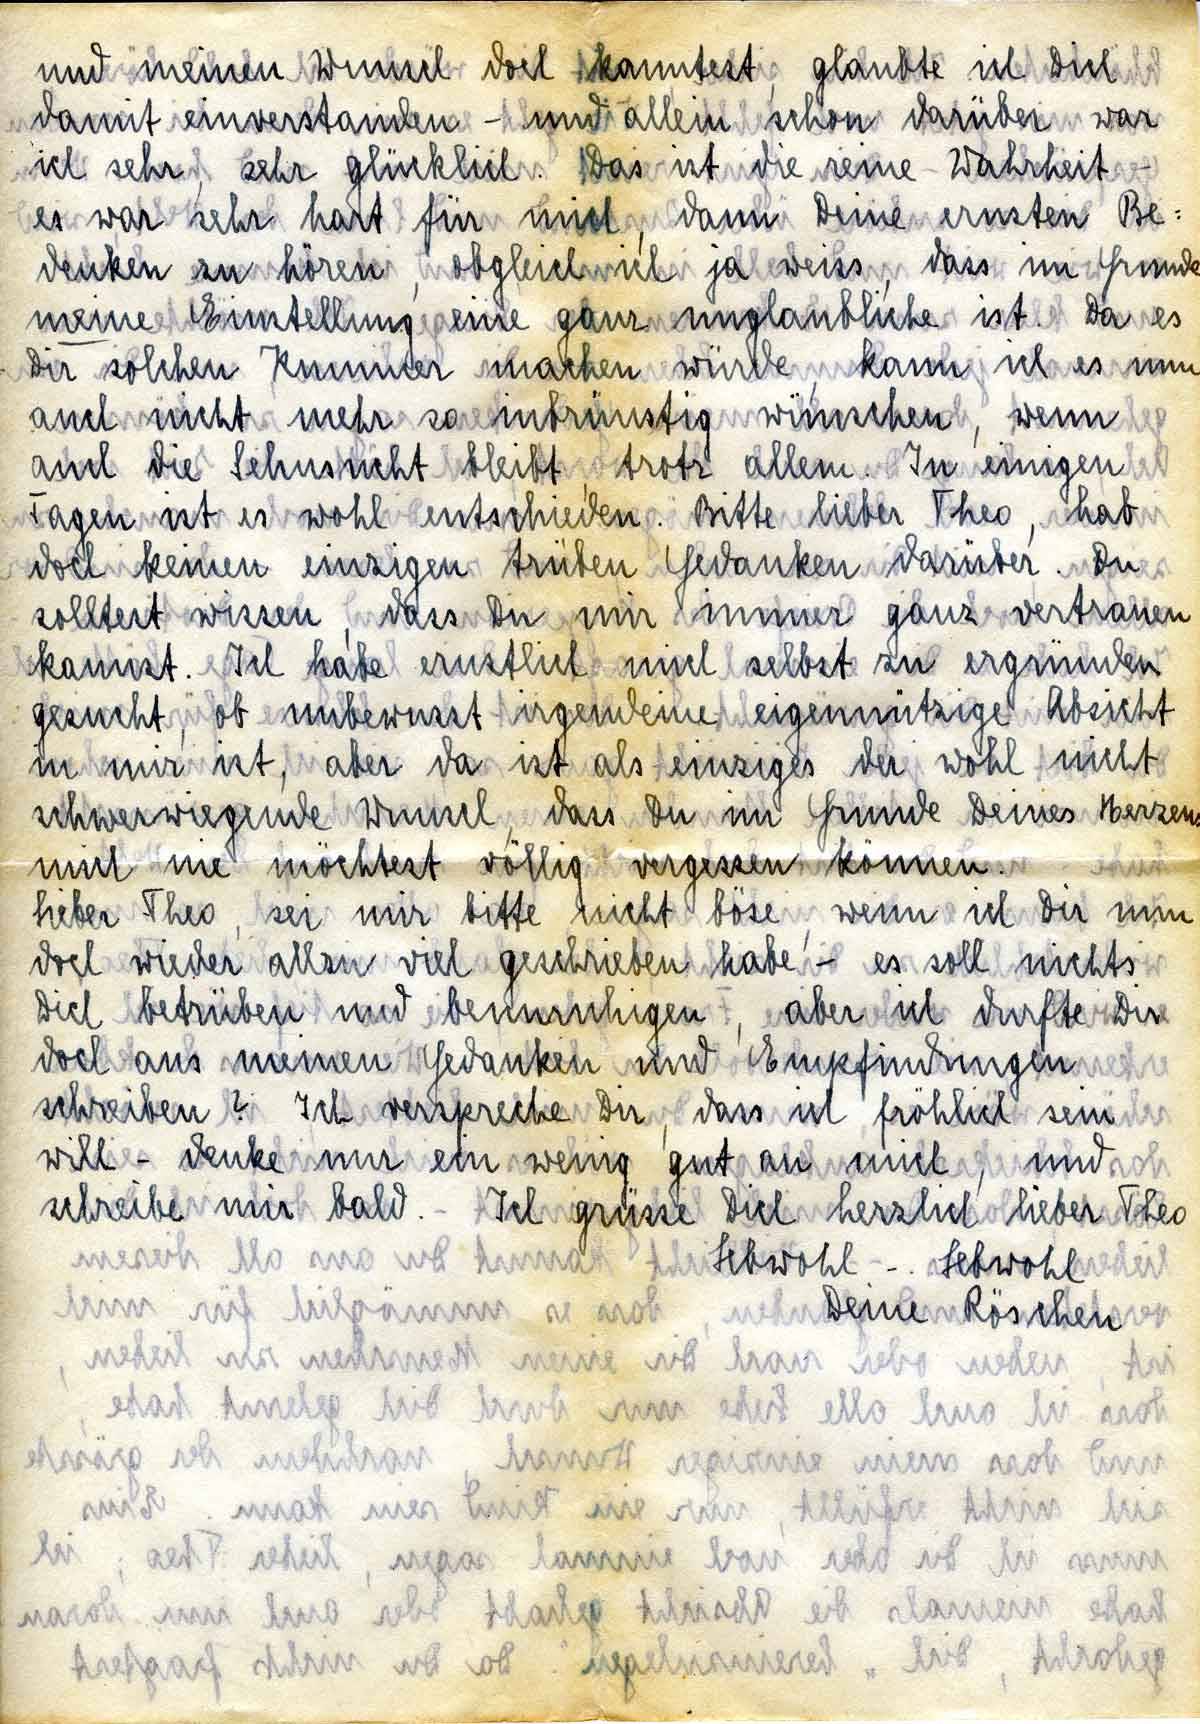 und meinen Wunsch doch kanntest, glaubte ich Dich
damit einverstanden - und allein schon darüber war
ich sehr, sehr glücklich. Das ist die reine Wahrheit -
es war sehr hart für mich, dann Deine ernsten Be=
denken zu hören, obgleich ich ja weiss, dass im Grunde
meine Einstellung eine ganz unglaubliche ist. Da es
Dir solchen Kummer machen würde, kann ich es nun
auch nicht mehr so inbrünstig wünschen, wenn
auch die Sehnsucht bleibt, trotz allem. In einigen
Tagen ist es wohl entschieden. Bitte lieber Theo, hab
doch keinen einzigen trüben Gedanken darüber. Du
solltest wissen, dass Du mir immer ganz vertrauen
kannst. Ich habe ernstlich mich selbst zu ergründen
gesucht, ob unbewusst irgendeine eigennützige Absicht
in mir ist, aber da ist als einziges der wohl nicht
schwerwiegende Wunsch, dass Du im Grunde Deines Herzens
mich nie möchtest völlig vergessen können.
Lieber Theo, sei mir bitte nicht böse, wenn ich Dir nun
doch wieder allzu viel geschrieben habe - es soll nichts
Dich betrüben und beunruhigen, aber ich durfte Dir
doch aus meinen Gedanken und Empfindungen
schreiben? Ich verspreche Dir, dass ich fröhlich sein
will - denke nur ein wenig gut an mich, und
schreibe mir bald. - Ich grüsse Dich herzlich lieber Theo
Lebwohl - . Lebwohl
Deine Röschen